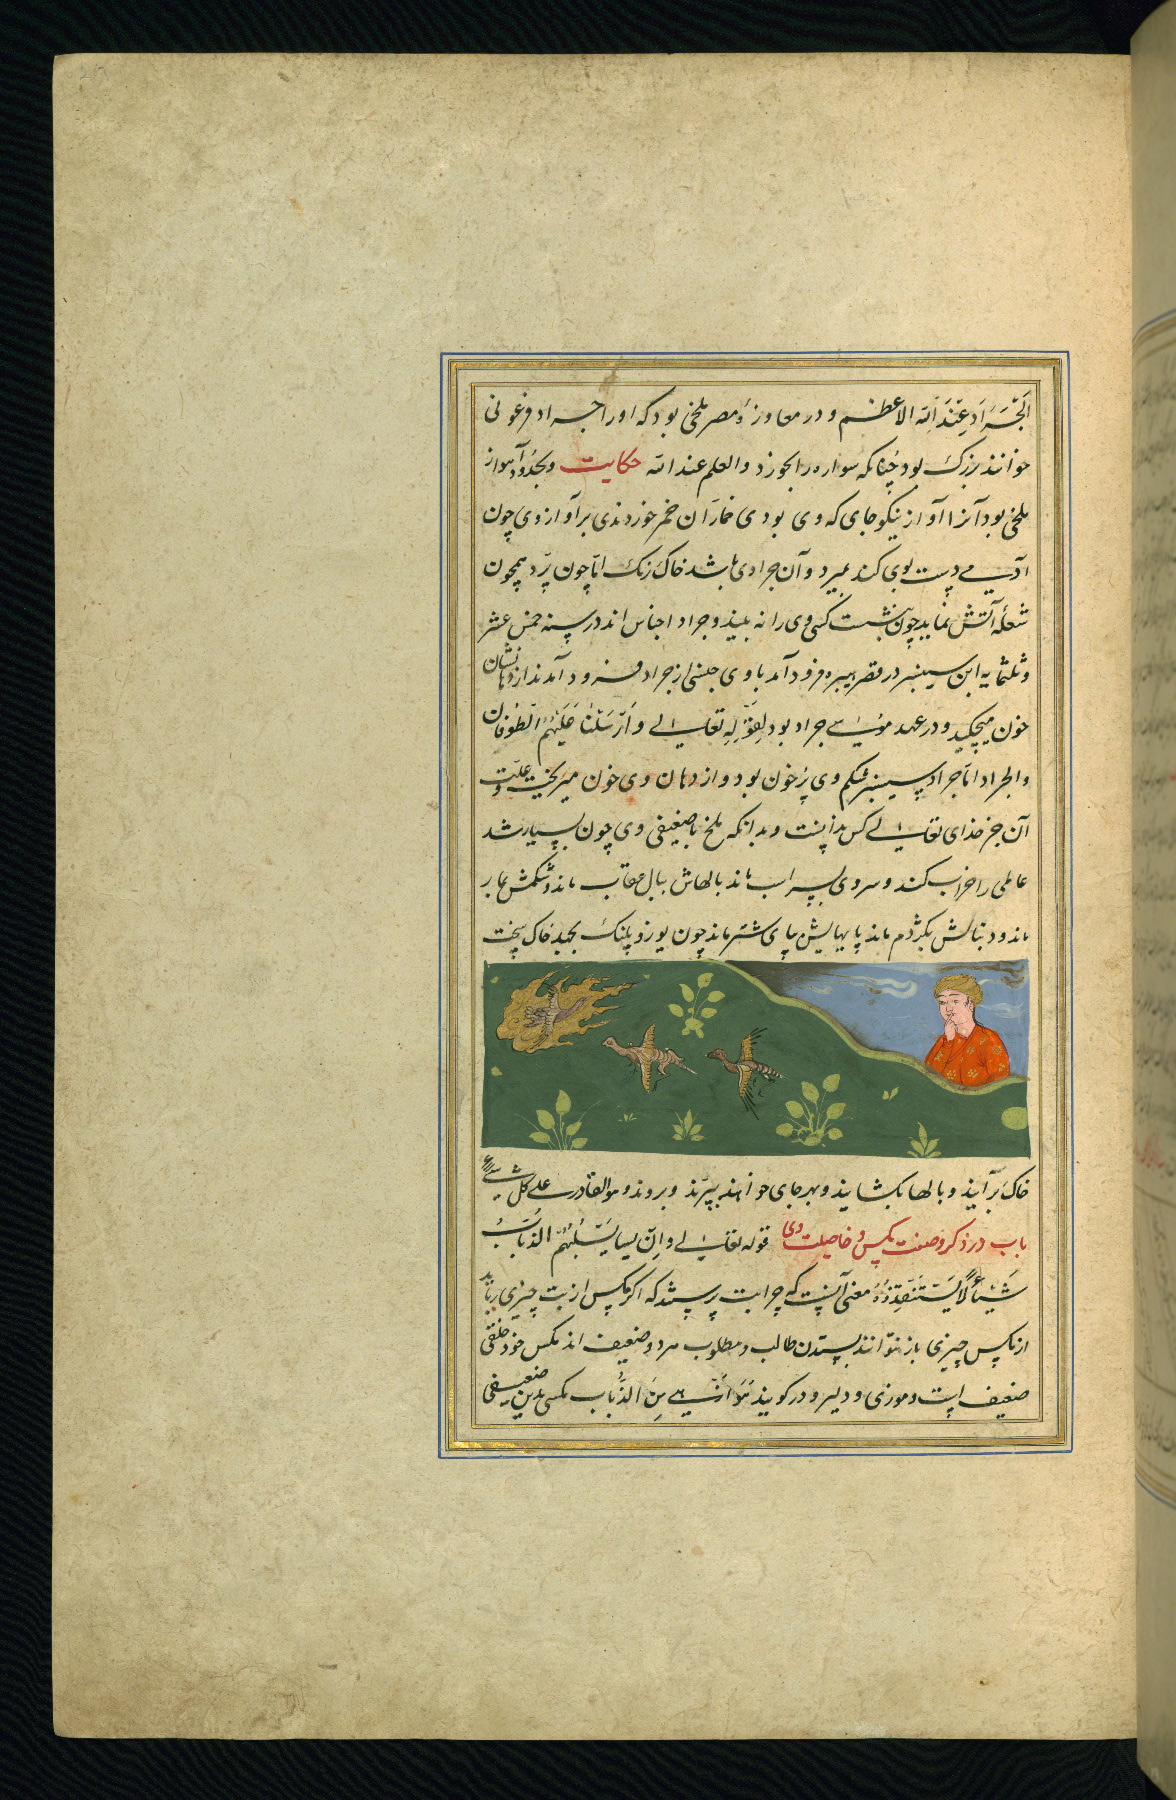 الجراد عند الله الاعظم و در مفازهٔ مصر ملخی بود که او را جراد فرعونی
خوانند بزرک بود چنانکه سواره را بخورد والعلم عند الله حکایت و بحدود اهواز
ملخی بود آنرا آواز نیکو جای که وی بودی خماران خمر خوردندی بر آواز وی چون
آدمی دست بوی کند بمیرد و آن جرادی باشد خاک رنک اما چون پرّد همچون
شعلهٔ آتش نماید چون بنشست کسی وی را نه بیند و جراد اجناس اند در سنه خمس عشر
وثلثمایه ابن در قصر هبیره فرود آمد با وی جنسی از جراد فرود آمدند از دهانشان
خون میچکید و در عهد موسی جراد بود لقوله تعالی وارسلنا علیهم الطوفان
والجراد اما جراد شکم وی پرخون بود و از دهان وی خون میریخت و علت
آن جز خدای تعالی کس ندانست و بدانکه ملخ با ضعیفی وی چون بسیار شد
عالمی را خراب کند و سر وی بسر اسب ماند بالهاش ببال عقاب ماند و شکمش بمار
ماند و دنبالش بکژدم ماند پایهایش بپای شتر ماند چون یوز و پلنک بجهد خاک سخت
خاک برآیند و بالها بکشایند و بهر جای خواهند بپرّند و بروند وهو القادر علی کل شیء
باب در ذکر و صفت مکس و خاصیات وی قوله تعالی وان یسلبهم الذباب
شیئاً لا یستنقذوه معنی آنست که چرا بت پرستند که اکر مکس از بت چیزی رباید
از مکس چیزی باز نتوانند ستدن طالب و مطلوب هردو ضعیف اند مکس خود خلقی
ضعیف است و موذی و دلیر و در کویند من الذباب مکسی بدین ضعیفی